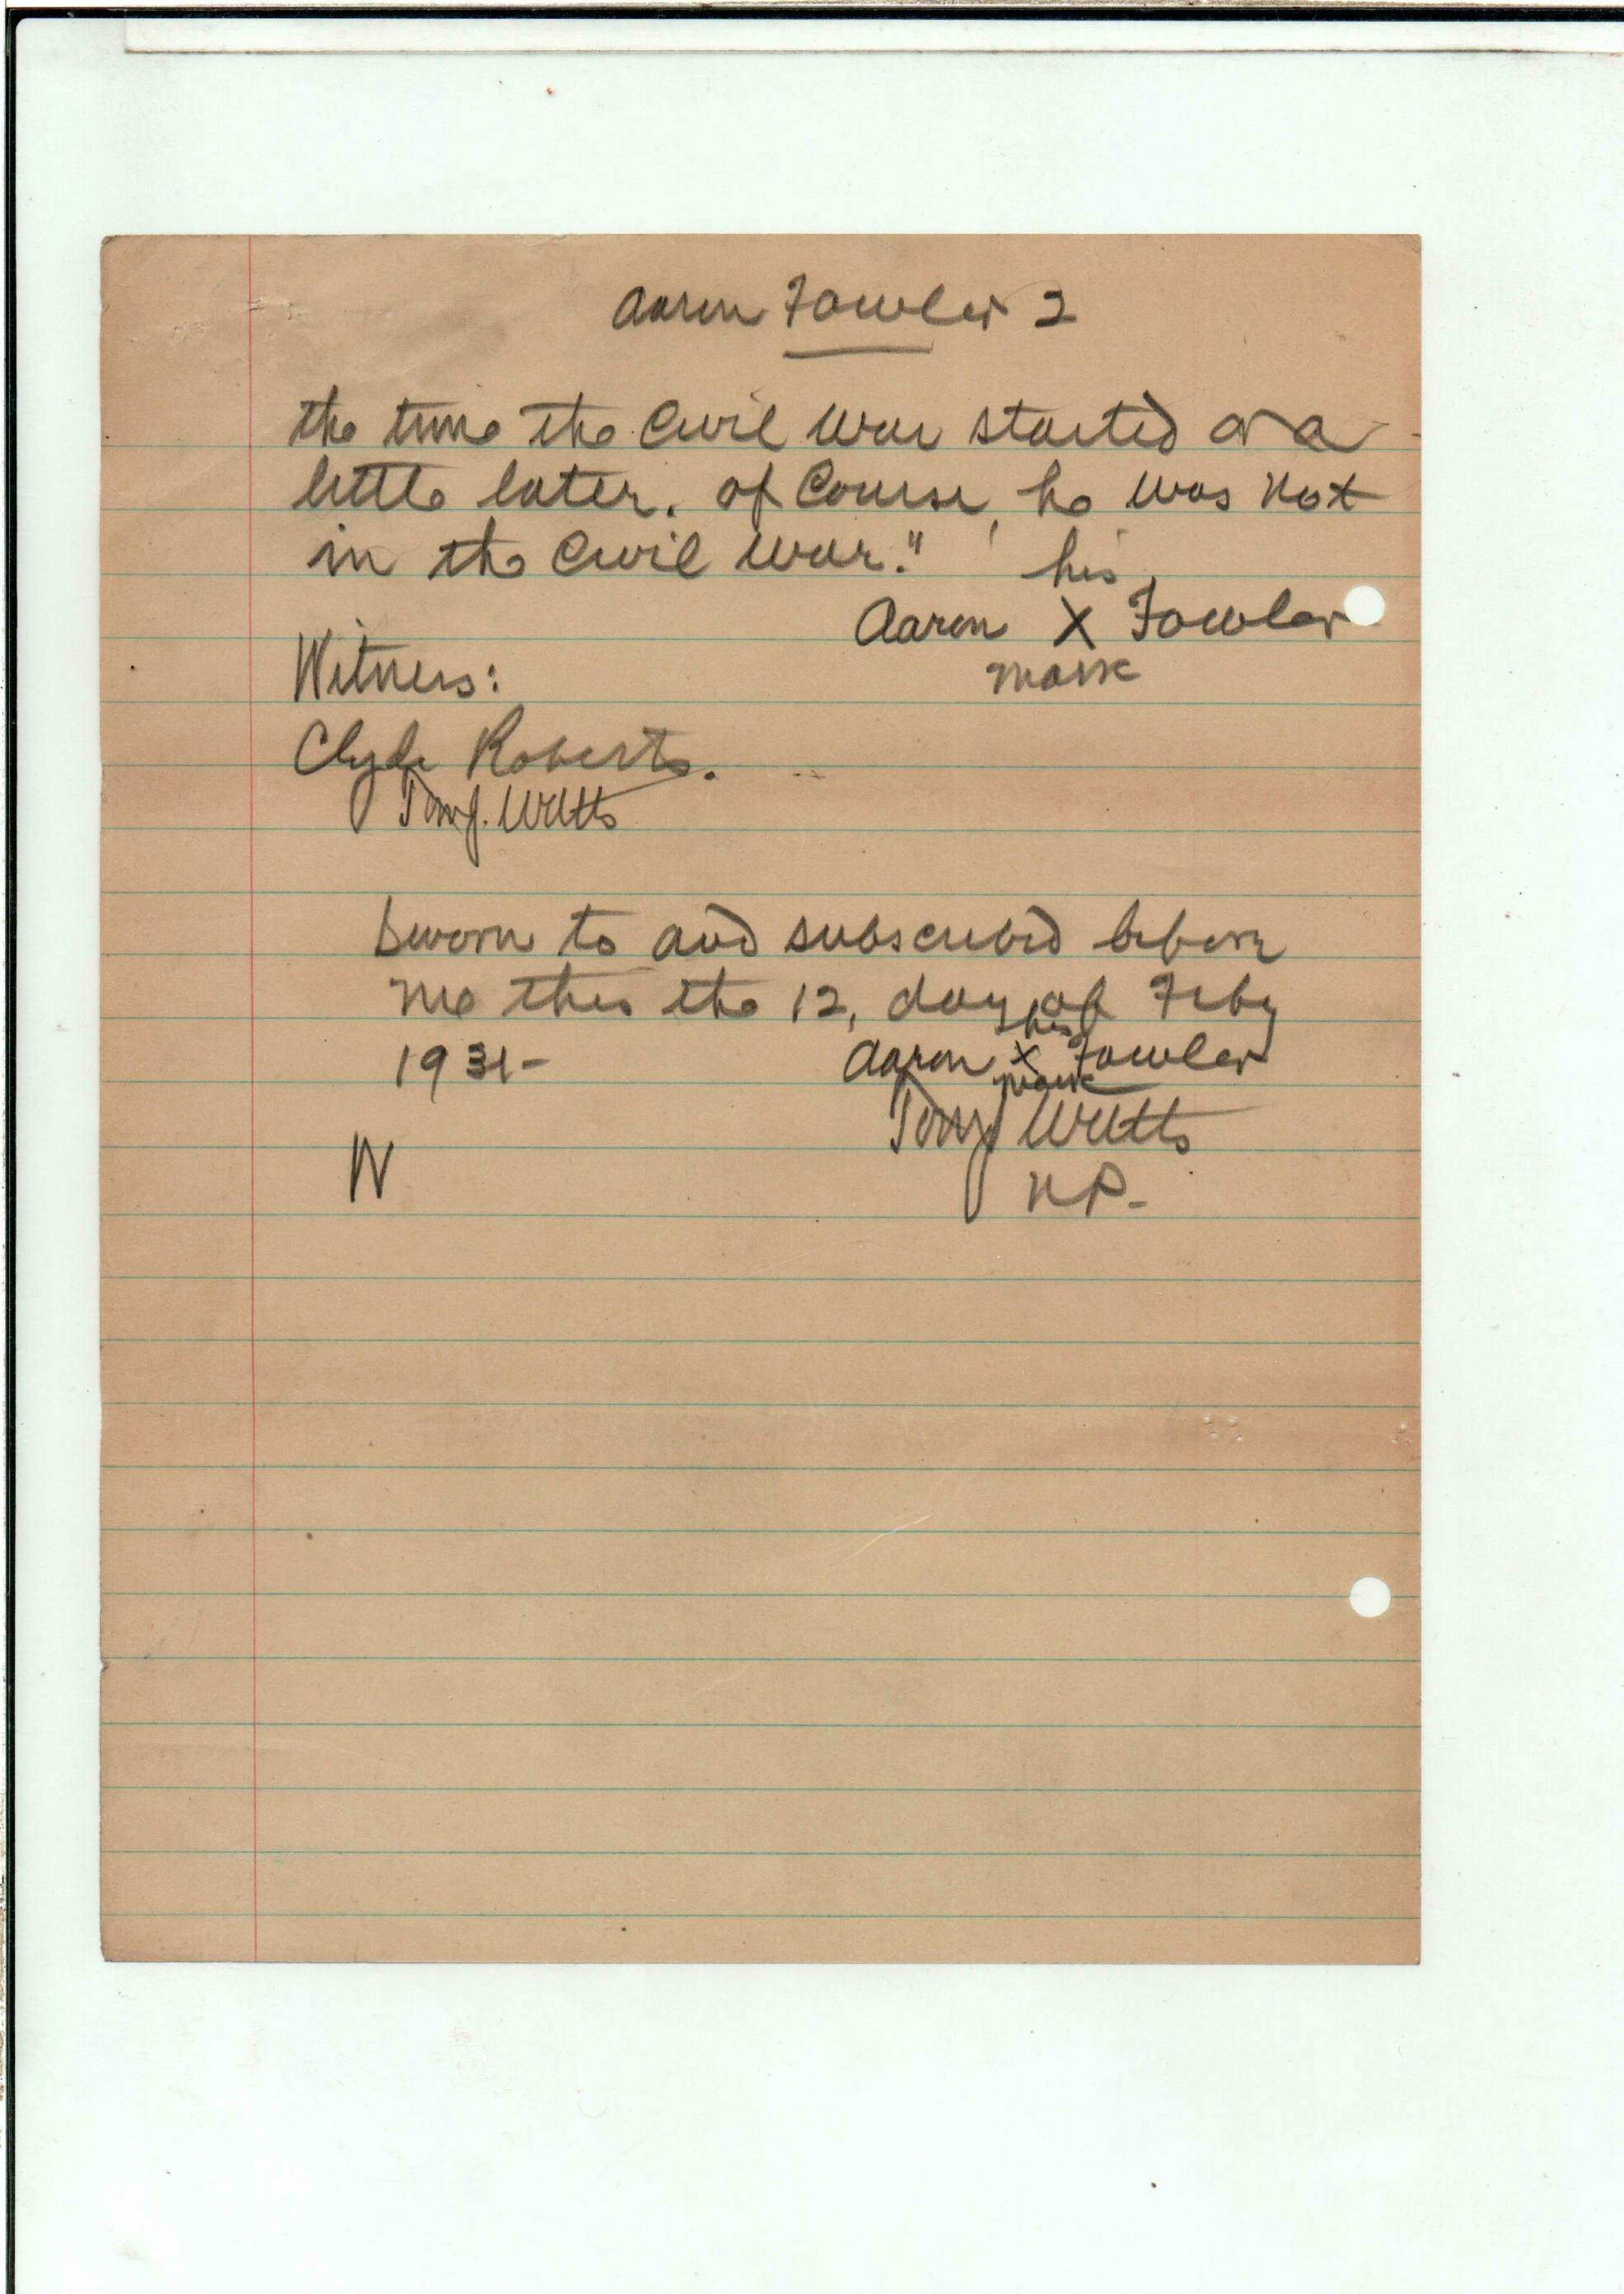 Aaron Fowler 2
the time the Civil War started or a
little later. Of Course, he was not
in the Civil War."
his
Aaron X Fowler
mark
Witness:
Clyde Roberts.
Sworn to and subscribed before
me this the 12, day of Feby
1931-
his
Aaron X Fowler
mark
N.P.-